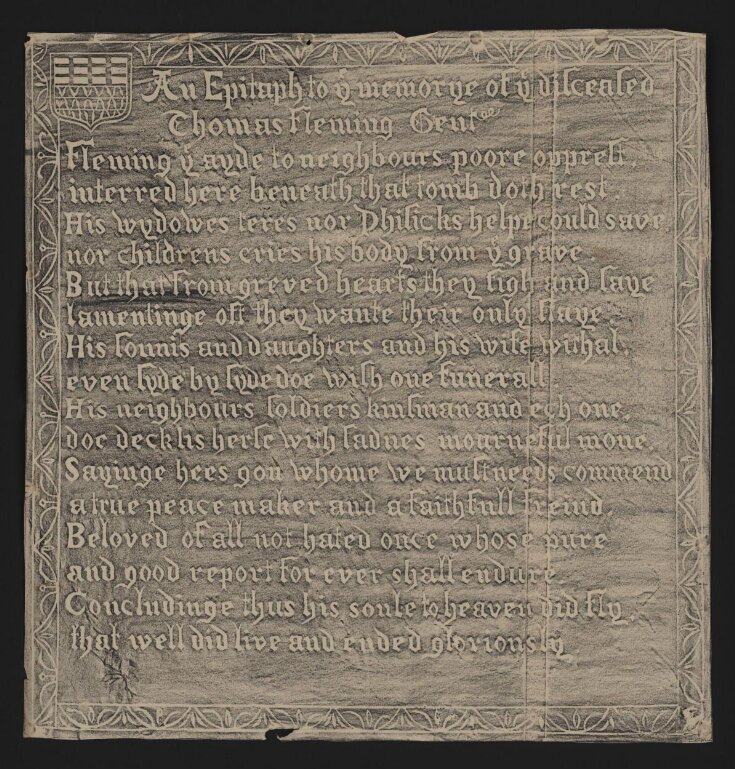 An Epitaph to ẏ memorye of ẏ disceased
Thomas Fleming Gent
Fleming ẏ ayde to neighbours poore opprest,
interred here beneath that tomb doth rest
His wydowes teres nor Phisicks helpe could save
nor childrens cries his body from ẏ grave.
But that from greved hearts they sigh and saye
lamentinge oft they wante their only staye
His sonnis and daughters and his wife withal,
even syde by syde doe wish one funerall
His neighbours soldiers kinsman and ech one,
doe deck his herse with sadnes mournefull mone.
Sayinge hees gon whome we must needs commend
a true peace maker and a faithfull freind,
Beloved of all not hated once whose pure
and good report for ever shall endure
Concludinge thus his soule to heaven did fly,
that well did live and ended gloriously